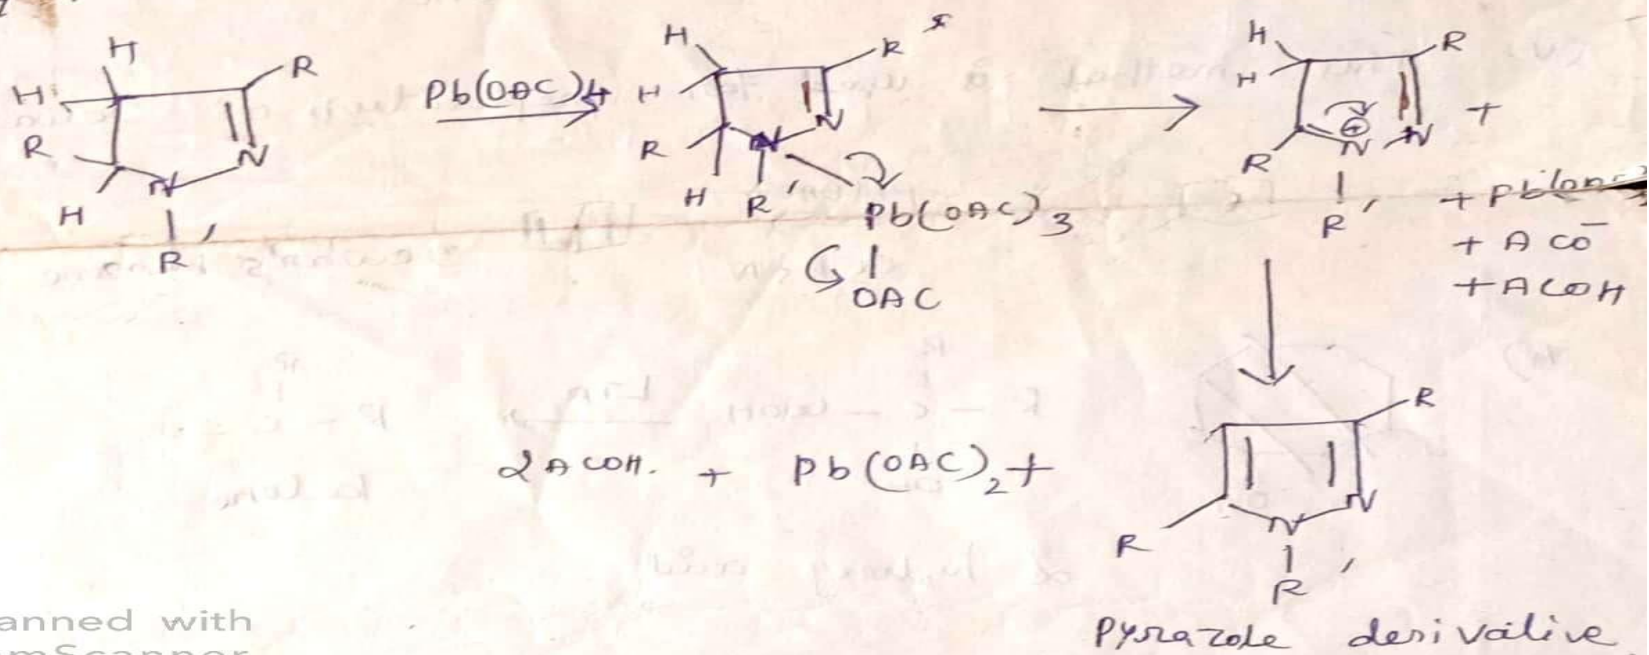 H
H
R
H
N
N
R'
Pb(OAC)4
H
H
R
H
R
N
N
R'
Pb(OAC)3
OAC
H
H
R
R
⊕
N
N
R'
+
+ ACO⁻
+ ACOH
2ACOH. + Pb(OAC)2 +
R
N
N
R
R'
Pyrazole derivative
anned with